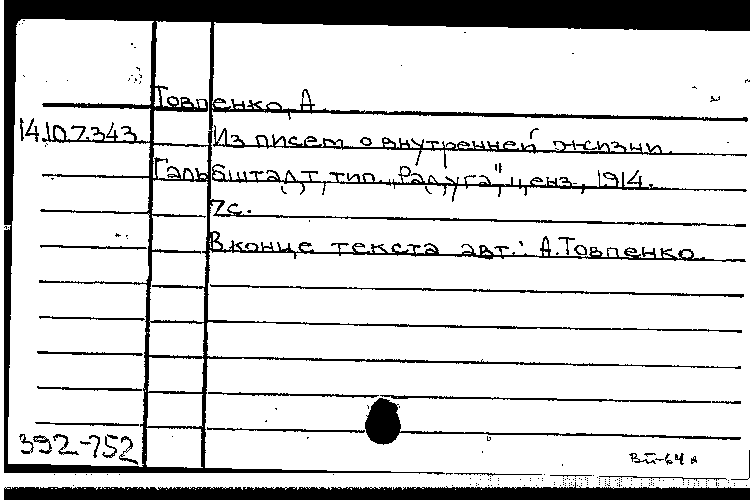 Товпенко, А.
14.10.7.343. Из писем о внутренней жизни.
Гальбштадт, тип. „Радуга", ценз., 1914.
7с.
В конце текста авт.: А.Товпенко.
392-752